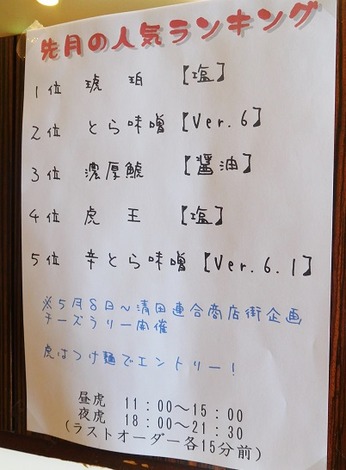 先月の人気ランキング
1位 琥珀 【塩】
2位 とら味噌【Ver.6】
3位 濃厚鯱 【醤油】
4位 虎王 【塩】
5位 辛とら味噌【Ver.6.1】
※5月8日～清田連合商店街企画
チーズラリー開催
虎はつけ麺でエントリー！
昼虎 11：00～15：00
夜虎 18：00～21：30
(ラストオーダー各15分前)